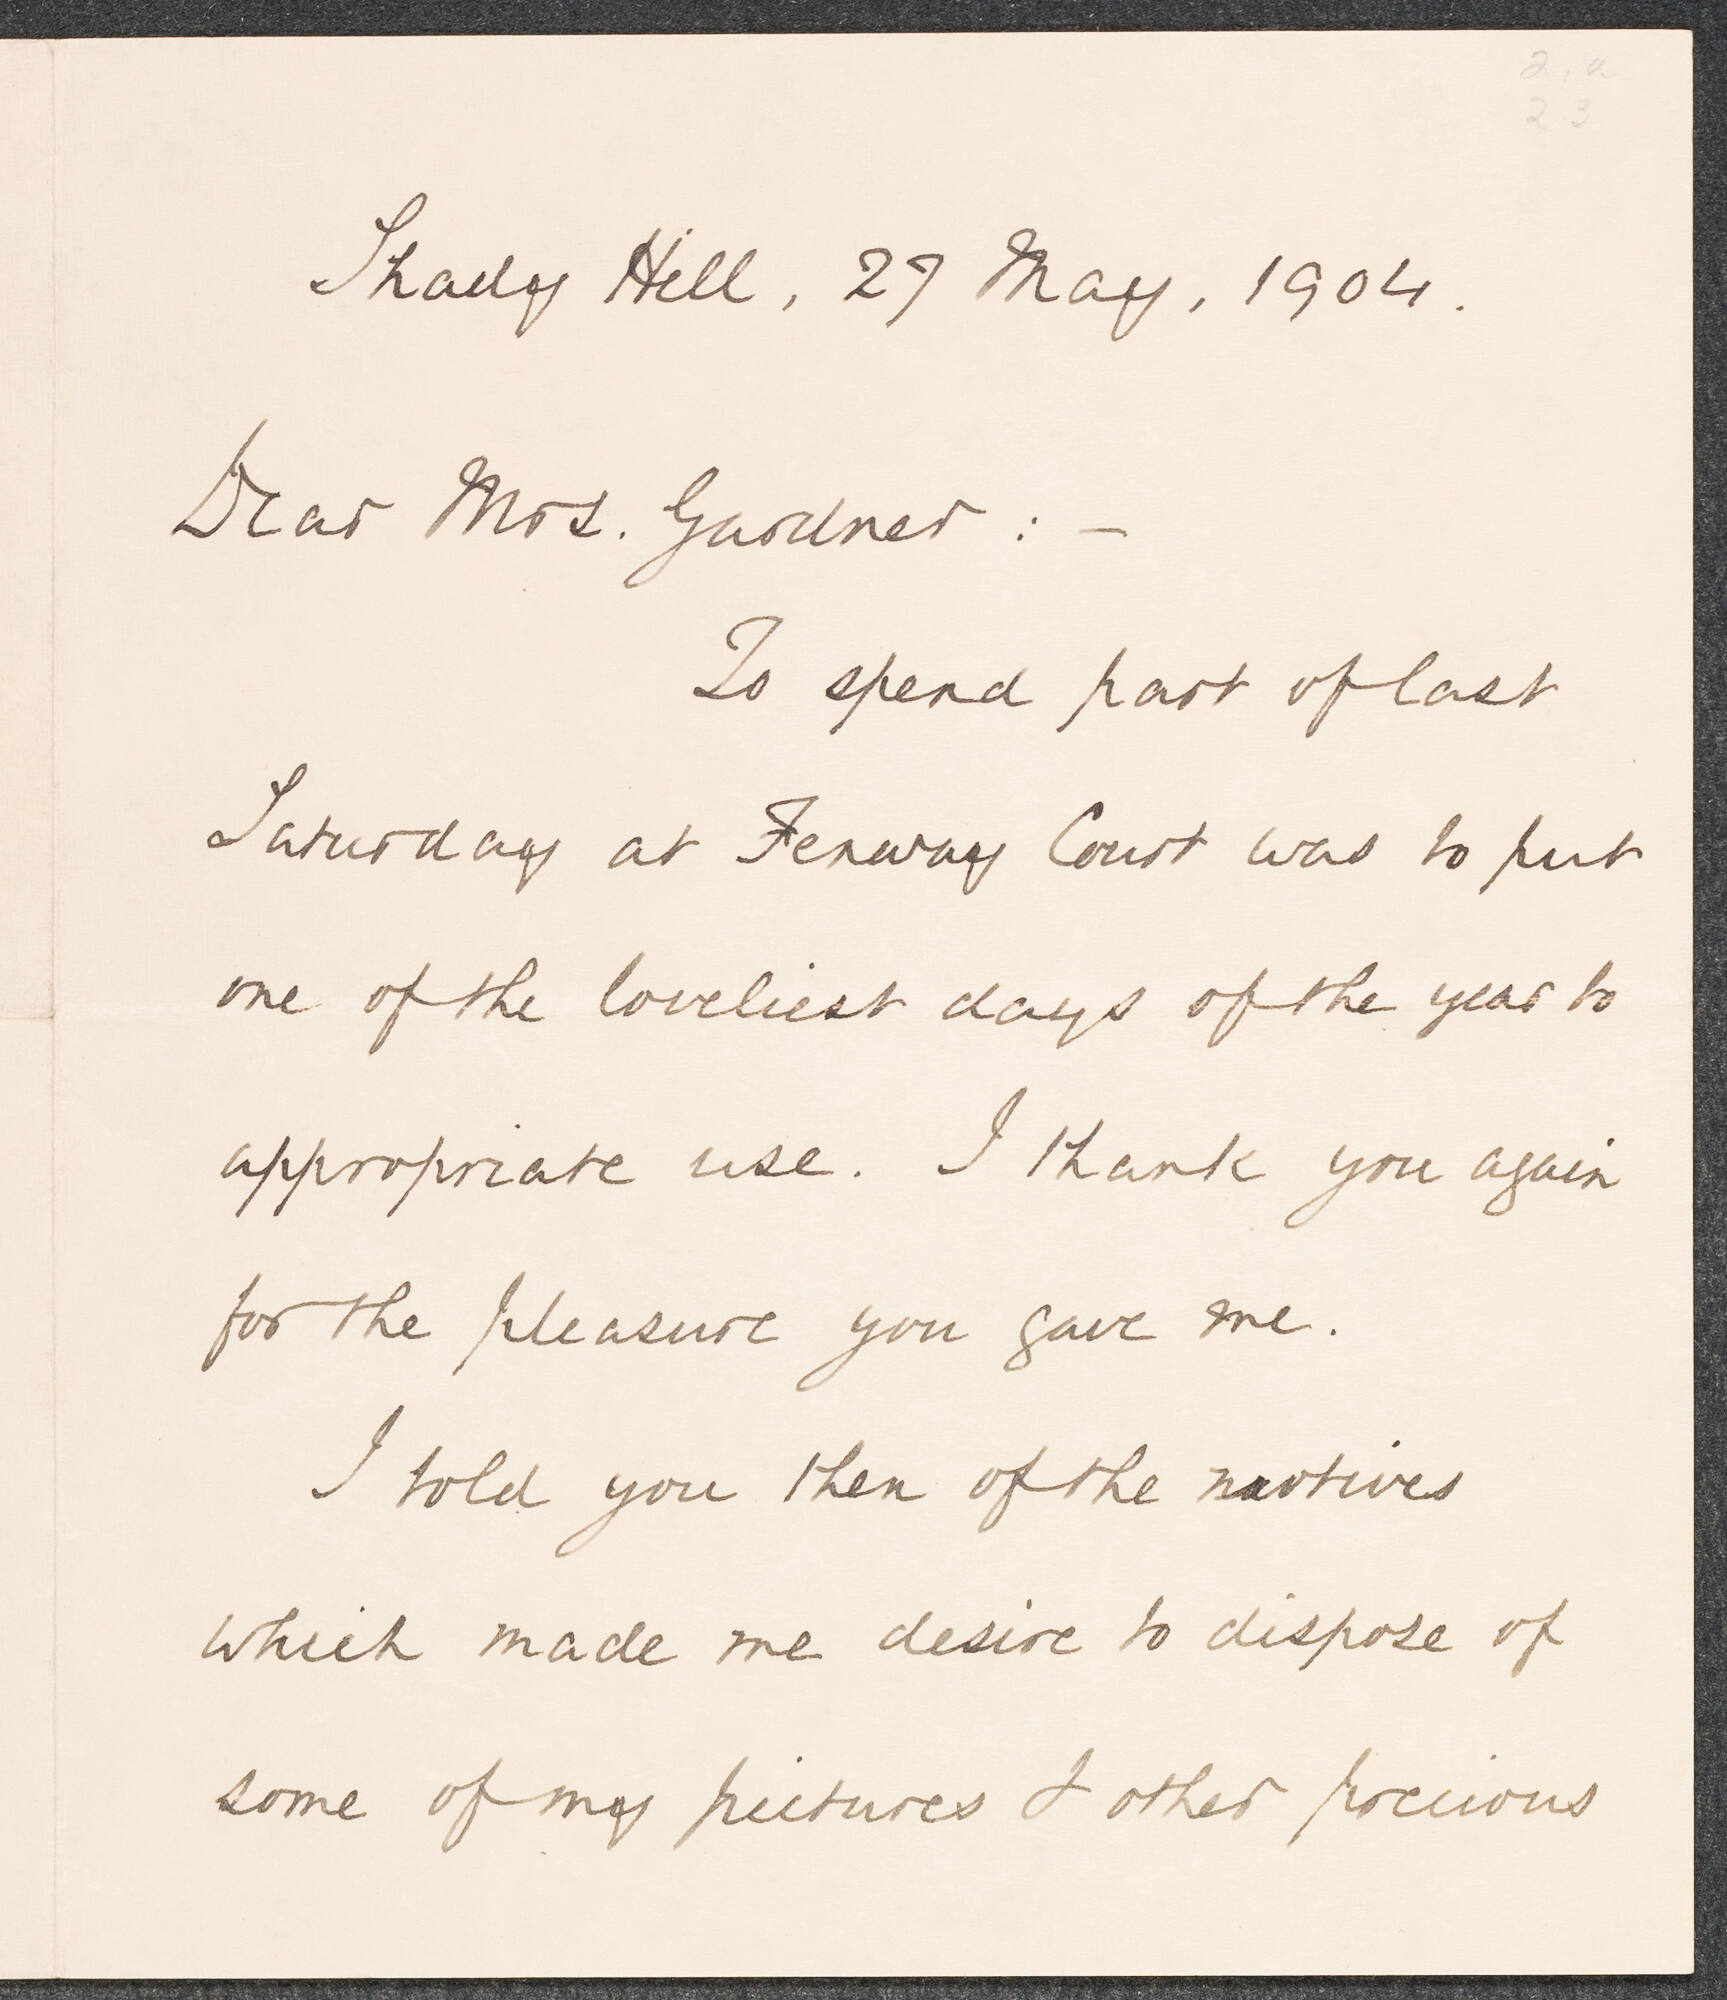 2.a
23
Shady Hill, 27 May, 1904.
Dear Mrs. Gardner :—
To spend part of last
Saturday at Fenway Court was to put
one of the loveliest days of the year to
appropriate use. I thank you again
for the pleasure you gave me.
I told you then of the motives
which made me desire to dispose of
some of my pictures & other precious